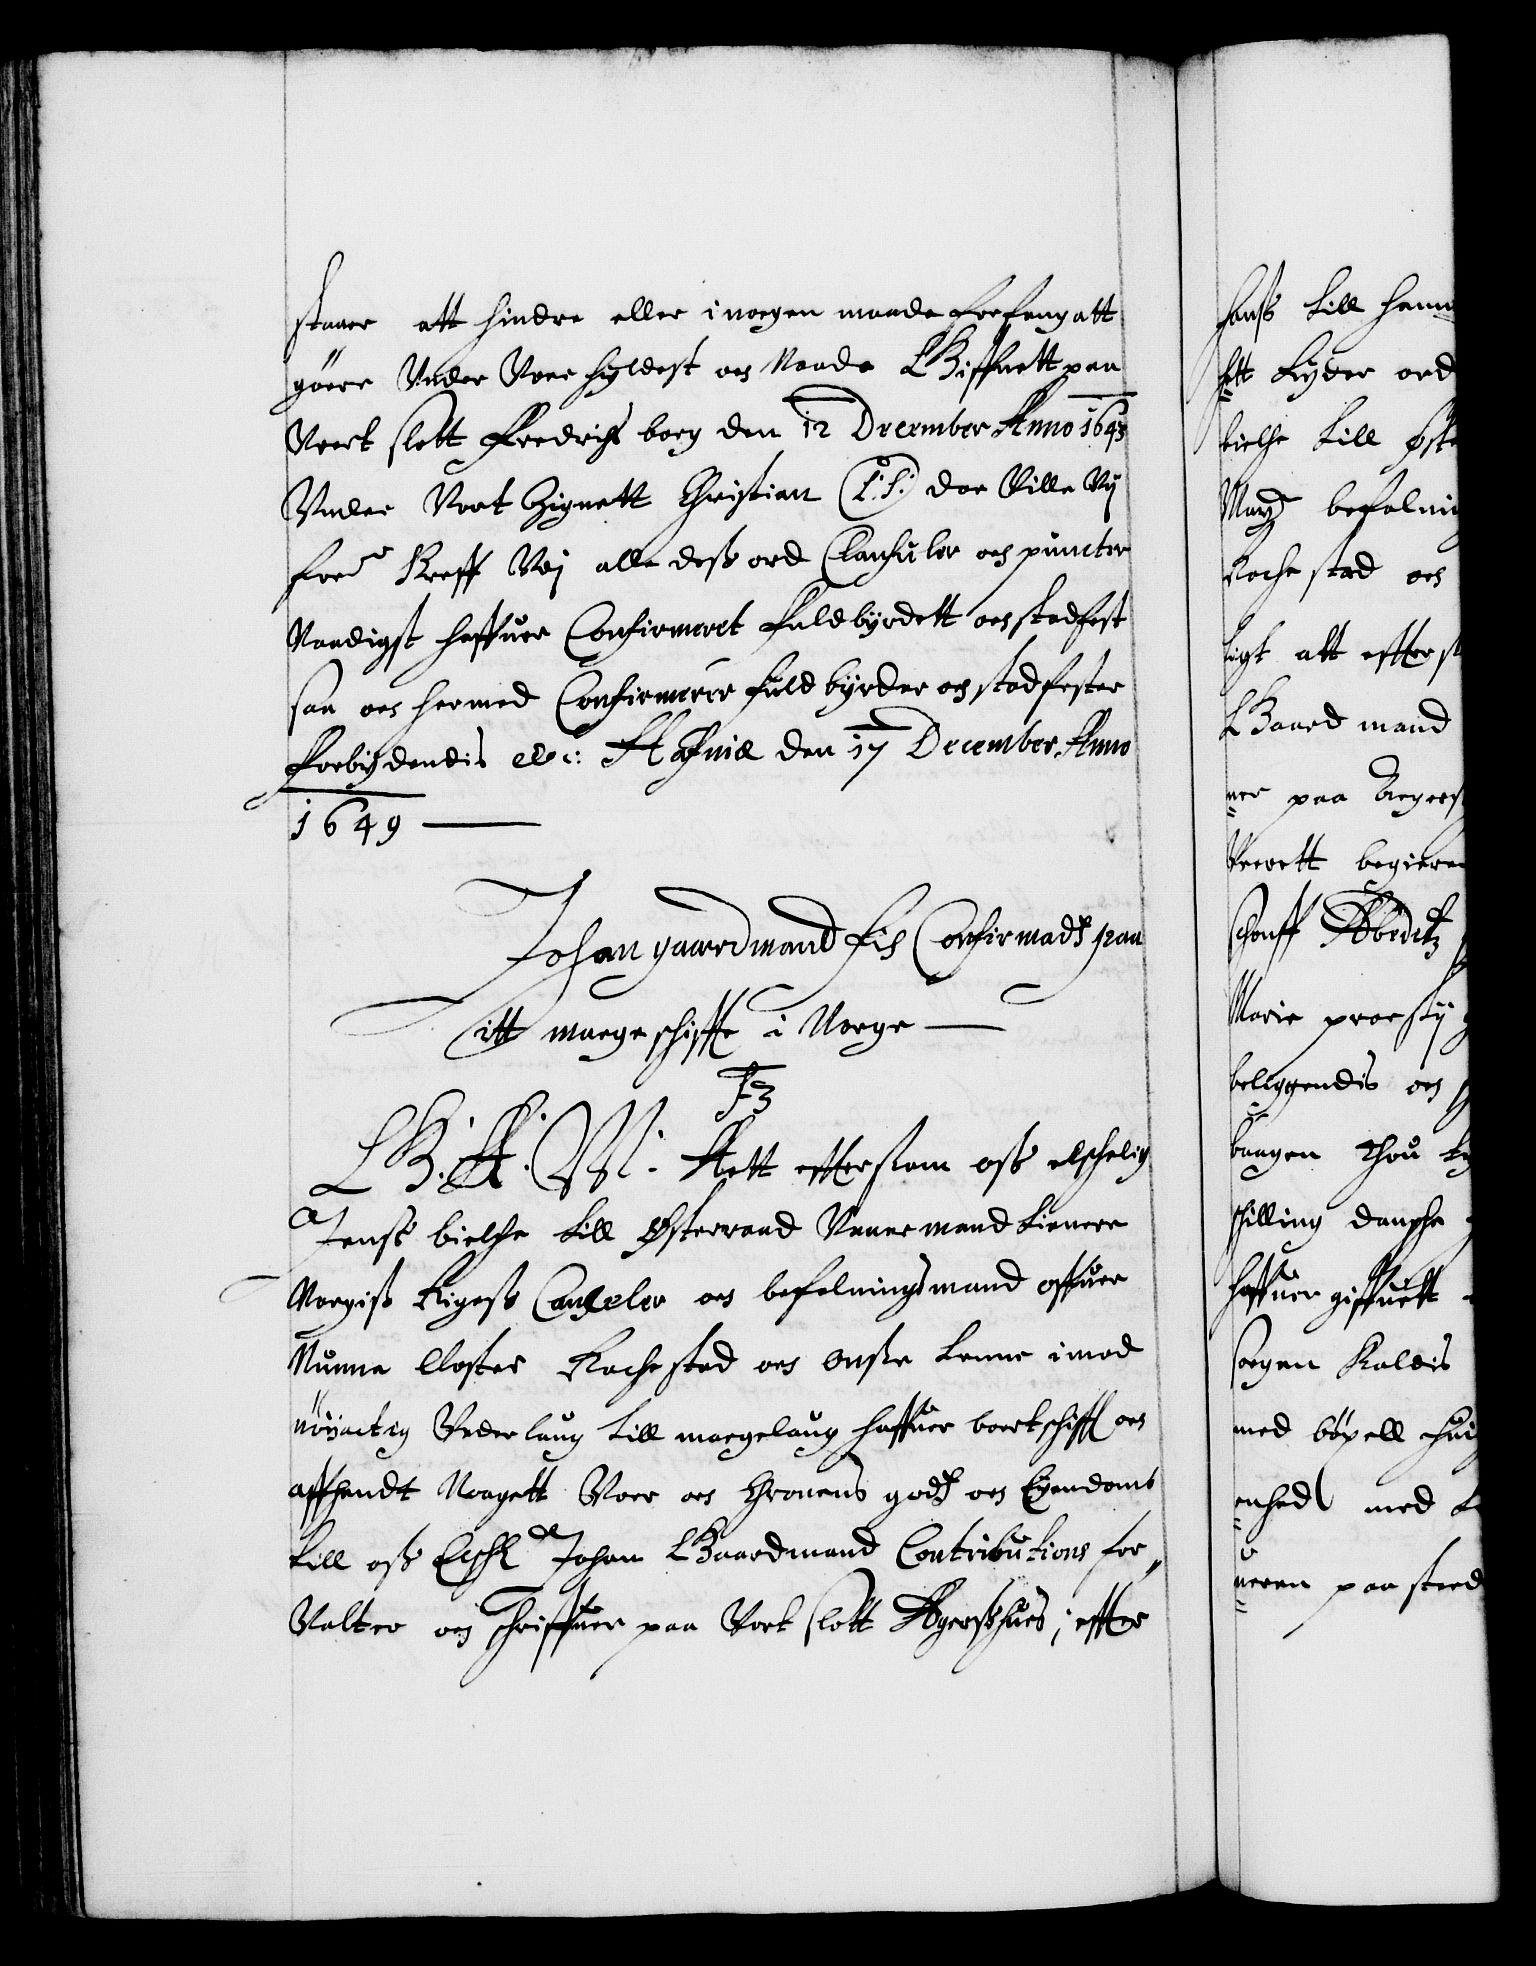 staaer att hindre eller i nogen maade forfang att
göere Vnder Voer hyldest och Naade Giffuett paa
Voert slott Fredrichs borg den 12 December Anno 1643
Vnder Vort Zignett Christian (L.S.) daa Ville Vij
forᵉ Breff Vdj alle dess ord Clausuler och puncter
Naadigst haffuer Confirmeret fuldbyrdett och stadfest
saa och hermed Confirmerer fuldbyrder och stadfester
Forbydendis etc: Hafniæ den 17 December Anno
1649
Johan gaardmand fich Confirmads paa
itt mageschiffte i Norge
F3
G.A.V. Att effterson oss elschelig
Jenss bielche till Østeraad Vaaer mand tienere
Norgiss Rigess Cantzeler och befalningsmand offuer
Nunne Closter Rachestad och Onsøe Lenne imod
nöyactig Vederlaug till magelaug haffuer bortschifft och
affhendt Noegett Voer och Chronens gods och Eyendomb
till oss Elschl Johan Gaardmand Contributions for„
Valter och Schriffuer paa Vort slott Agerszhues, effter
hanss till hannd
hett Lyder ord
bielche till øste
Mayᵗ befalni
Rache stad och
ligt att effters
Gaard mand
ner paa Agers
Vverett begieren
schouff
Marie proesty
beliggendis och
baagen
schilling danshe
haffuer giffuett
soegen Kaldis
med böxell
enhed med
neren paa sted